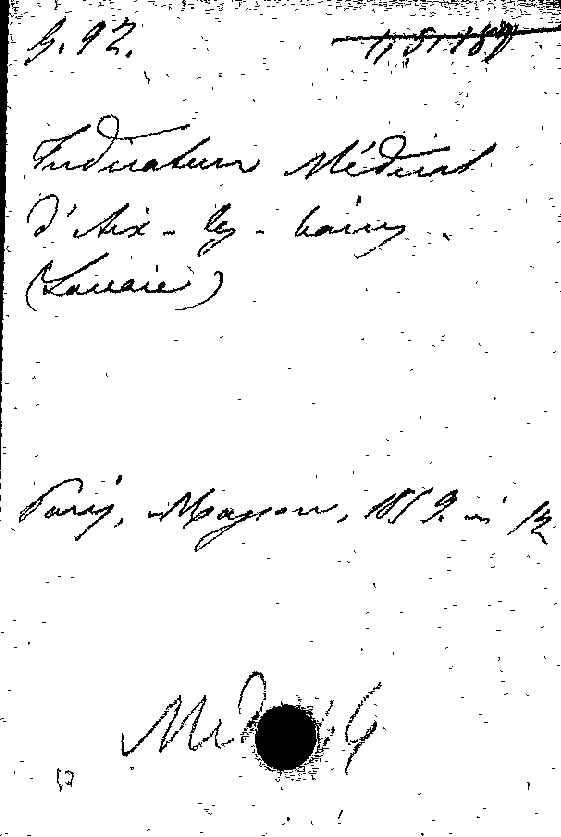 G. 92.
Indicateur Médical
d'Aix-les-bains.
(Savoie)
Paris, Masson, 1859. in 12
Med